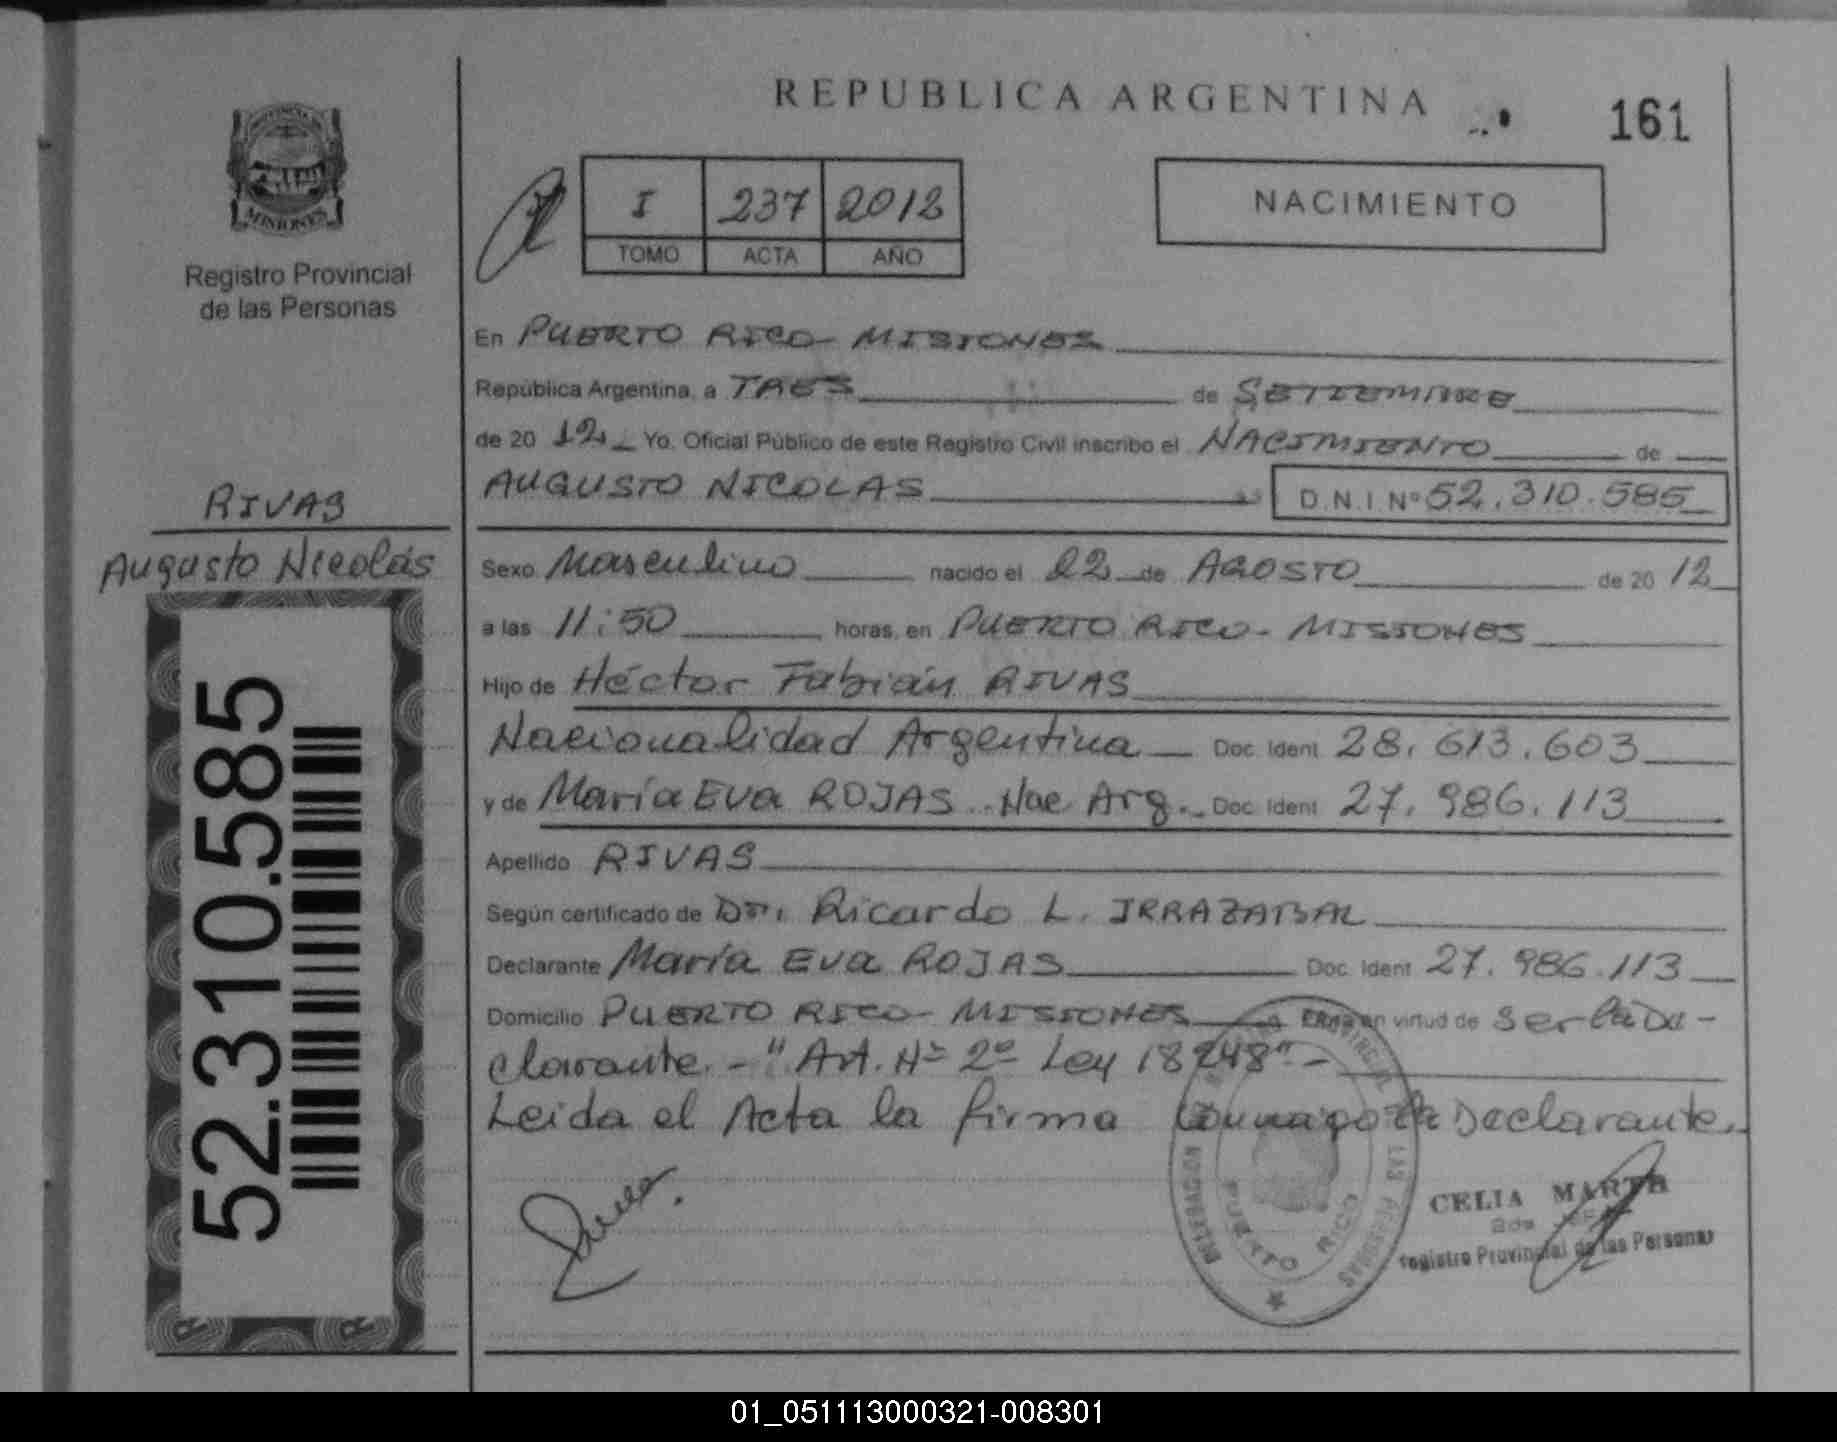 REPUBLICA ARGENTINA
161
MISIONES
Registro Provincial
de las Personas
I 237 2012
TOMO ACTA AÑO
NACIMIENTO
En PUERTO RICO - MISIONES
República Argentina, a TRES de SETIEMBRE
de 20 12 Yo, Oficial Público de este Registro Civil inscribo el NACIMIENTO de
AUGUSTO NICOLAS D.N.I. Nº 52.310.585
RIVAS
Augusto Nicolás
52.310.585
Sexo Masculino nacido el 22 de AGOSTO de 20 12
a las 11:50 horas, en PUERTO RICO - MISIONES
Hijo de Héctor Fabián RIVAS
Nacionalidad Argentina Doc. Ident. 28.613.603
y de María EVA ROJAS Nac Arg. Doc. Ident. 27.986.113
Apellido RIVAS
Según certificado de Dr. Ricardo L. IRRAZABAL
Declarante María EVA ROJAS Doc. Ident. 27.986.113
Domicilio PUERTO RICO - MISIONES en virtud de ser la De-
clarante. - "Art. Nº 2º Ley 18248" -
Leida el Acta la firma conmigo la Declarante.
DELEGACION PUERTO RICO
PROVINCIAL LAS PERSONAS
CELIA MARTA
Registro Provincial de las Personas
01_051113000321-008301